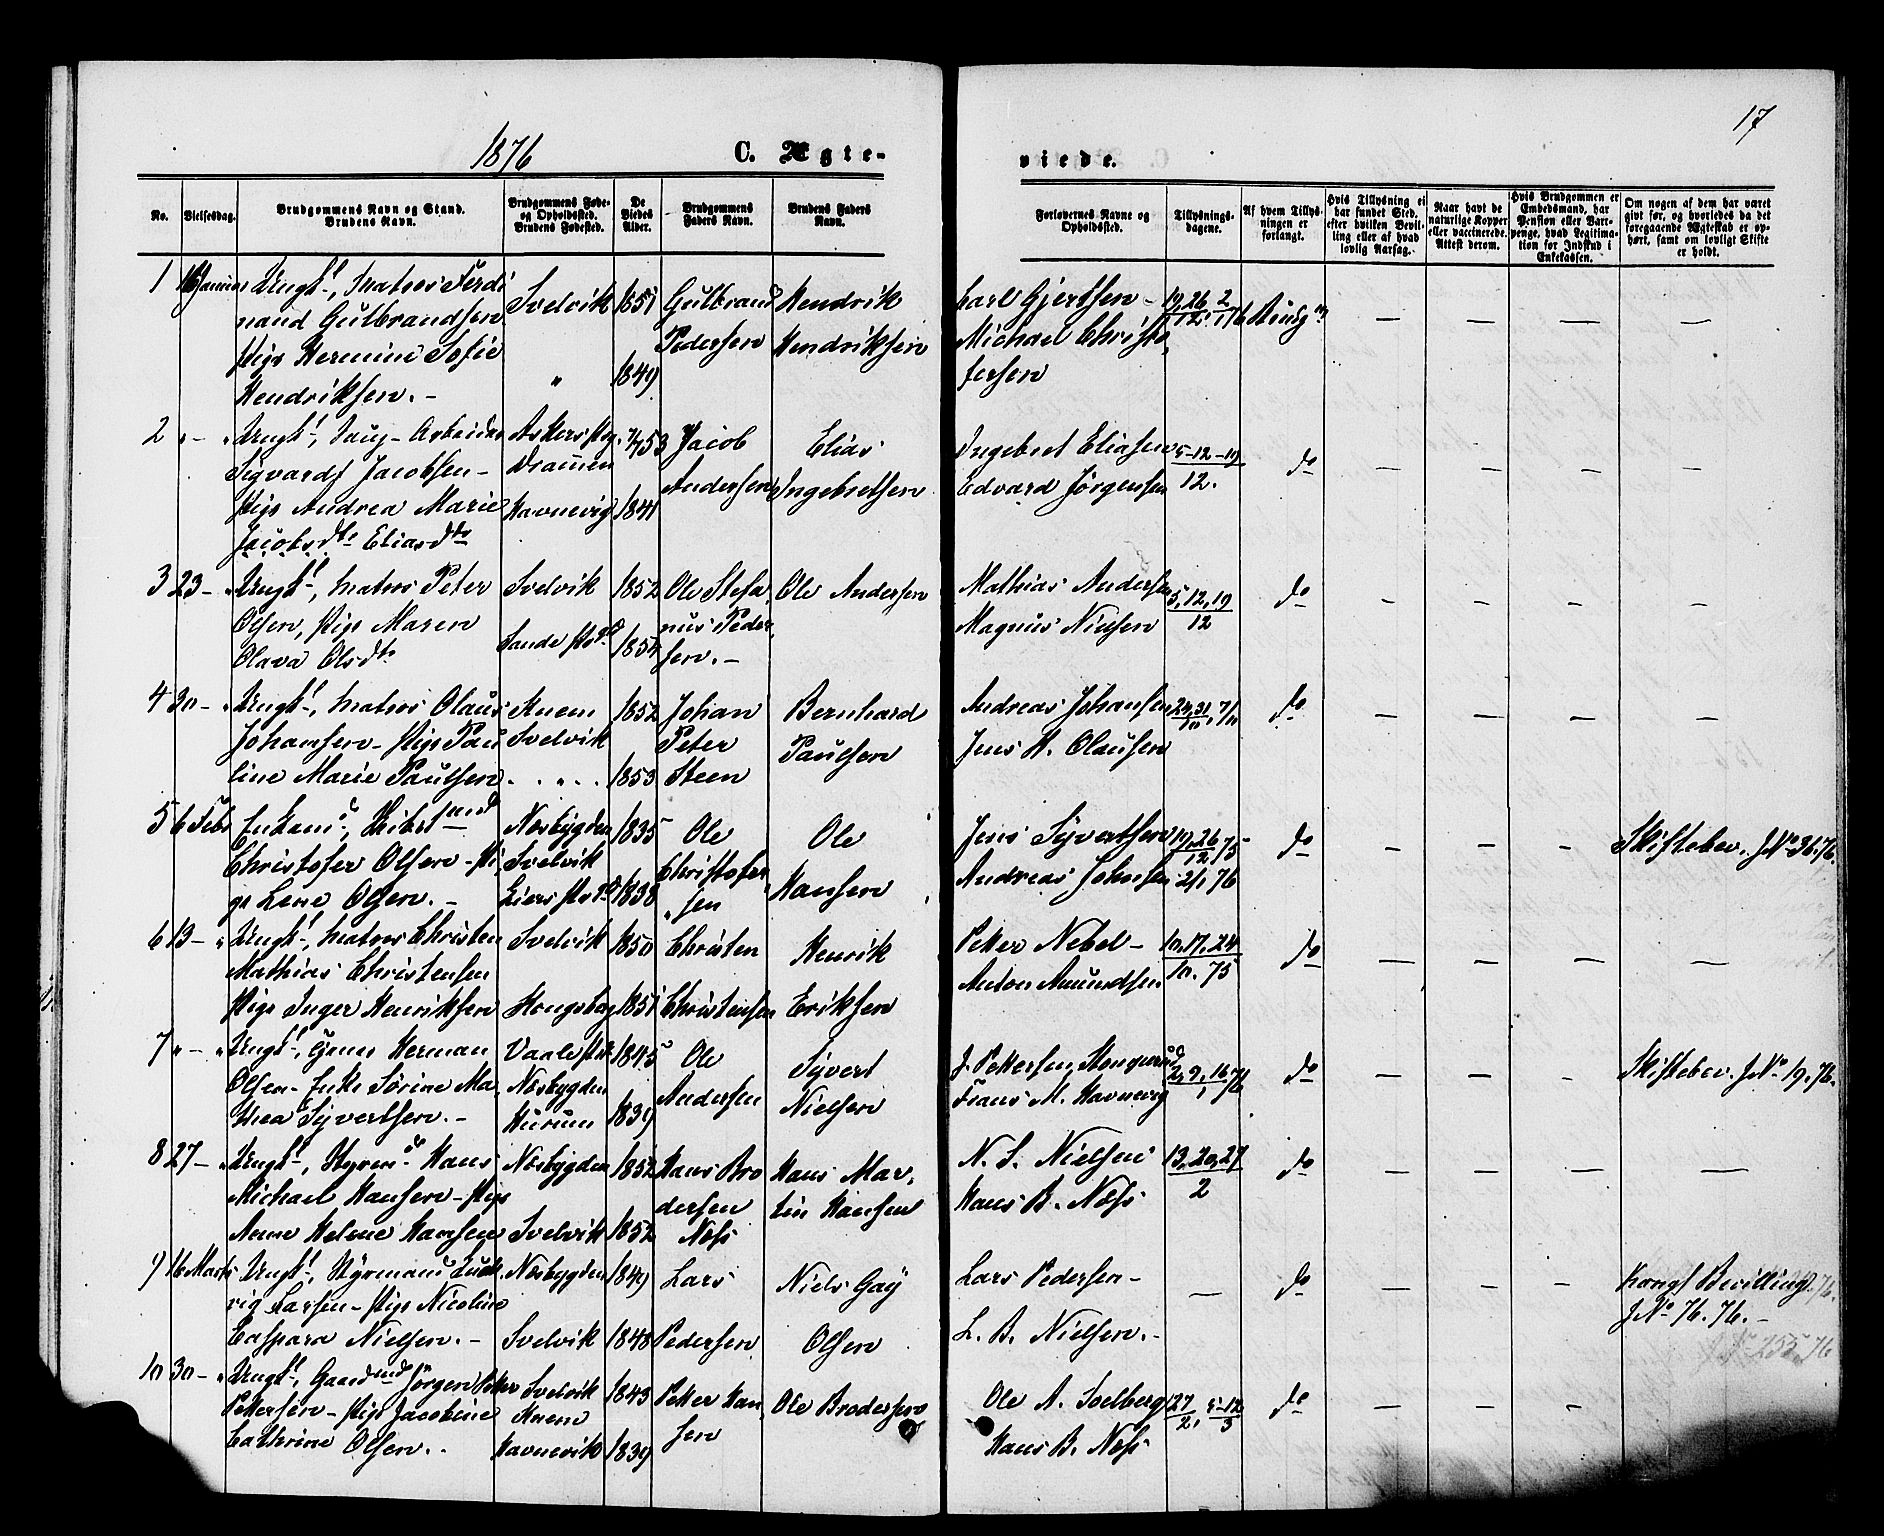 17
1876
C. Ægte-
viede.
No.
Vielsesdag.
Brudgommens Navn og Stand.
Brudens Navn.
Brudgommens Føde-
og Opholdssted.
Brudens Fødested.
De
Viedes
Alder.
Brudgommens
Faders Navn.
Brudens Faders
Navn.
Forlovernes Navne og
Opholdssted.
Tillysnings-
dagene.
Af hvem Tillys-
ningen er
forlangt.
Hvis Tillysning ei
har fundet Sted,
efter hvilken Bevil-
ling eller af hvad
lovlig Aarsag.
Naar havt de
naturlige Kopper
eller vaccinerede.
Attest derom.
Hvis Brudgommen er
Embedsmand, har
Pension eller Vart-
penge, hvad Legitima-
tion for Indskud i
Enkekassen.
Om nogen af dem har været
givt før, og hvorledes da det
foregaaende Ægteskab er op-
hørt, samt om lovligt Skifte
er holdt.
1 16 Januar Ungk., Matros Ferdi
nand Gulbrandsen
Pige Hermine Sofie
Hendriksen. -
Svelvik
"
1851
1849
Gulbrand
Pedersen
Hendrik
Hendriksen
Carl Gjertsen -
Michael Christo,
fersen
19, 26, 2
12, 1 76
Brudg
2 " - " Ungk., Saug-Arbeider
Sigvardt Jacobsen -
Pige Andrea Marie
Jacobsdtr Eliasdtr
Askers Pr.
Dramen
Havnevig
7/4 53
1841
Jacob
Andersen
Elias
Ingebretsen
Ingebret Eliasen
Edvard Jørgensen
5-12-19
12.
do
3 23 - " Ungk., Matros Peter
Olsen, Pige Maren
Olava Olsdtr
Svelvik
Sande Pr.
1852
1854
Ole Stefa,
nus Peder,
sen. -
Ole Andersen
Mathias Andersen
Magnus Nielsen
5, 12, 19
12
do
4 30 - " Ungk., Matros Olaus
Johansen - Pige Pau
line Marie Paulsen
Knem
Svelvik
. . " . .
1852
1853
Johan
Peter
Steen
Bernhard
Paulsen
Andreas Johansen
Jens H. Olausen
24, 31, 7/11
10
do
5 6 Febr Enkem.,
Christofer Olsen - Pi,
ge Lene Olsen. -
Næsbygden
Svelvik
Liers
1835
1838
Ole
Christofer,
"sen
Ole
Hansen
Jens Syvertsen
Andreas Johnsen
19, 26 75
12
2/1 76
do
Skiftebev. JNo 36. 76.
6 13 - " Ungk., Matros Christen
Mathias Christensen
Pige Inger Henriksen
Svelvik
Kongsberg
1850
1851
Christen
Christensen
Henrik
Eriksen
Petter Nebel -
Anton Amundsen
10, 17, 24
10. 75
do
7 " - " Ungk., Herman
Olsen - Enke Sørine Ma,
thea Syvertsen. -
Vaale
Næsbygden
Hurum
1845
1839
Ole
Andersen
Syvert
Nielsen
J. Pettersen
Frans M. Havnevig
2, 9, 16 76
1
do
Skiftebev. JNo 19. 76.
8 27 - " Ungk., Styrm. Hans
Michael Hansen - Pige
Anne Helene Hansen
Næsbygden
Svelvik
1852
1852
Hans Bro
dersen
Næss
Hans Mar,
tin Hansen
N. S. Nielsen
Hans B. Næss
13, 20, 27
2
do
9 16 Marts Ungk., Styrmand Lud,
vig Larsen - Pige Nicoline
Caspara Nielsen. -
Næsbygden
Svelvik
1849
1848
Lars
Pedersen
Niels Gay
Olsen
Lars Pedersen -
L. B. Nielsen. -
do
Kongl Bevilling
JNo 76. 76. -
255. 76
10 30 - " Ungk., Gaardmd Jørgen Petter
Pettersen - Pige Jacobine
Cathrine Olsen. .
Svelvik
Knem
Havnevik
1843
1839
Petter Han,
sen
Ole Brodersen
Ole A. Solberg
Hans B. Næss
27, 5-12
2, 3
do